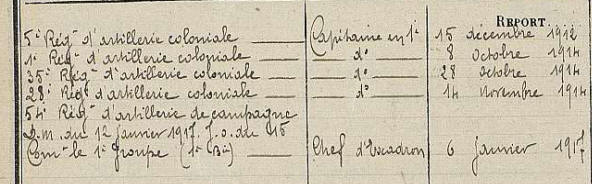 REPORT
5e Régt d'artillerie coloniale ——— Capitaine en 1er 15 décembre 1912
1er Régt d'artillerie coloniale ——— do 8 octobre 1914
35e Régt d'artillerie coloniale ——— do 28 octobre 1914
28e Régt d'artillerie coloniale ——— do 14 novembre 1914
54e Régt d'artillerie de campagne
D.M. du 12 Janvier 1917. J.O. du 15
Comt le 1er groupe (1re Bie) ——— Chef d'Escadron 6 Janvier 1917